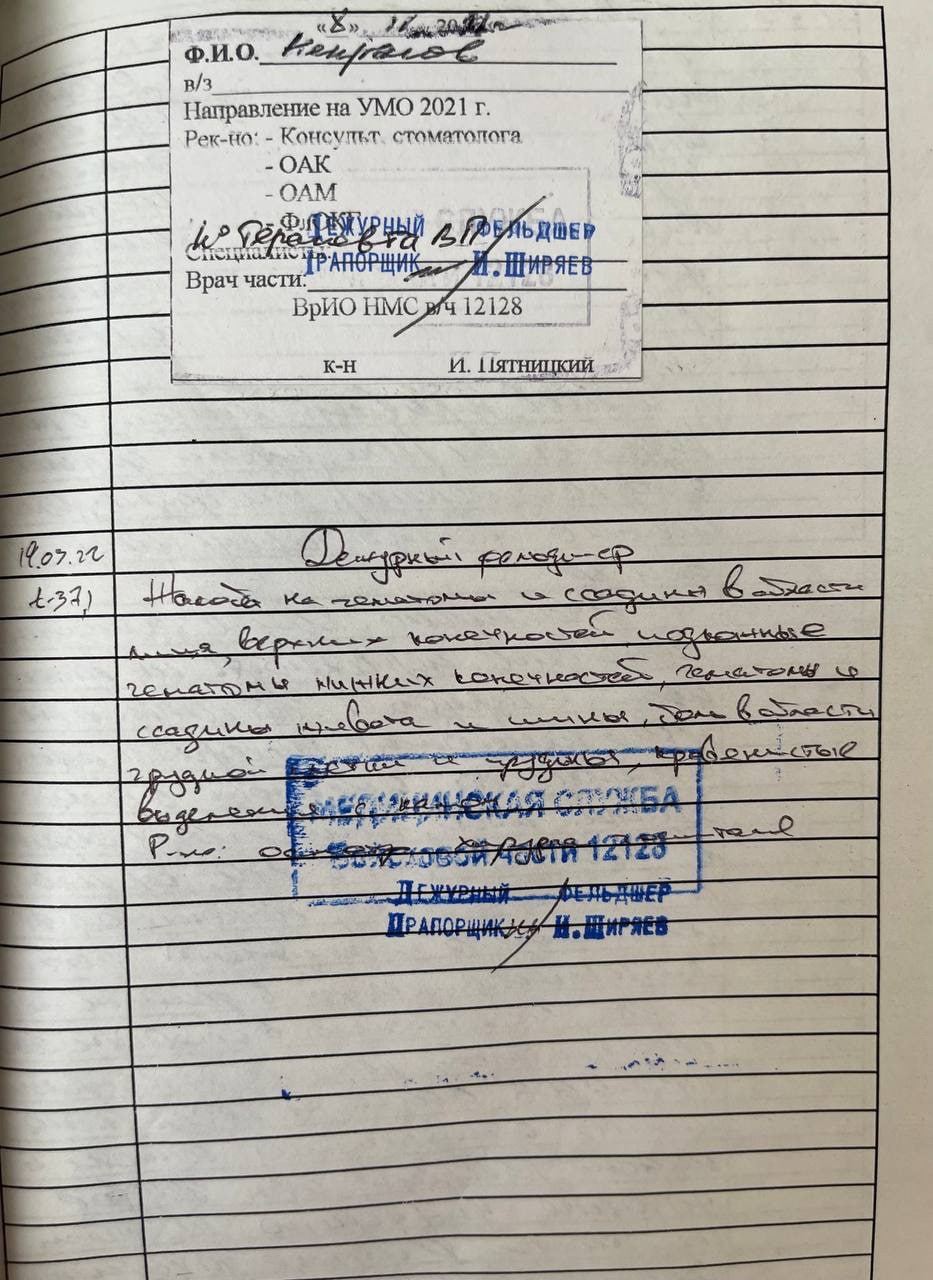 «8»
Ф.И.О.
в/з
Направление на УМО 2021 г.
Рек-но: - Консульт. стоматолога
- ОАК
- ОАМ
- ФлОКГ
Кº Терапевта ВП
ДЕЖУРНЫЙ ФЕЛЬДШЕР
Специалисты
ПРАПОРЩИК И.ШИРЯЕВ
Врач части:
ВрИО НМС в/ч 12128
к-н И. Пятницкий
19.03.22 Дежурный фельдшер
t-37,1 Жалобы на гематомы и ссадины в области
лица, верхних конечностей
гематомы нижних конечностей, гематомы и
ссадины живота и спины, боль в области
грудной клетки и грудины, кровянистые
выделения с
Р-но: осмотр хирурга
МЕДИЦИНСКАЯ СЛУЖБА
ВОЙСКОВОЙ ЧАСТИ 12128
ДЕЖУРНЫЙ ФЕЛЬДШЕР
ПРАПОРЩИК И.ШИРЯЕВ